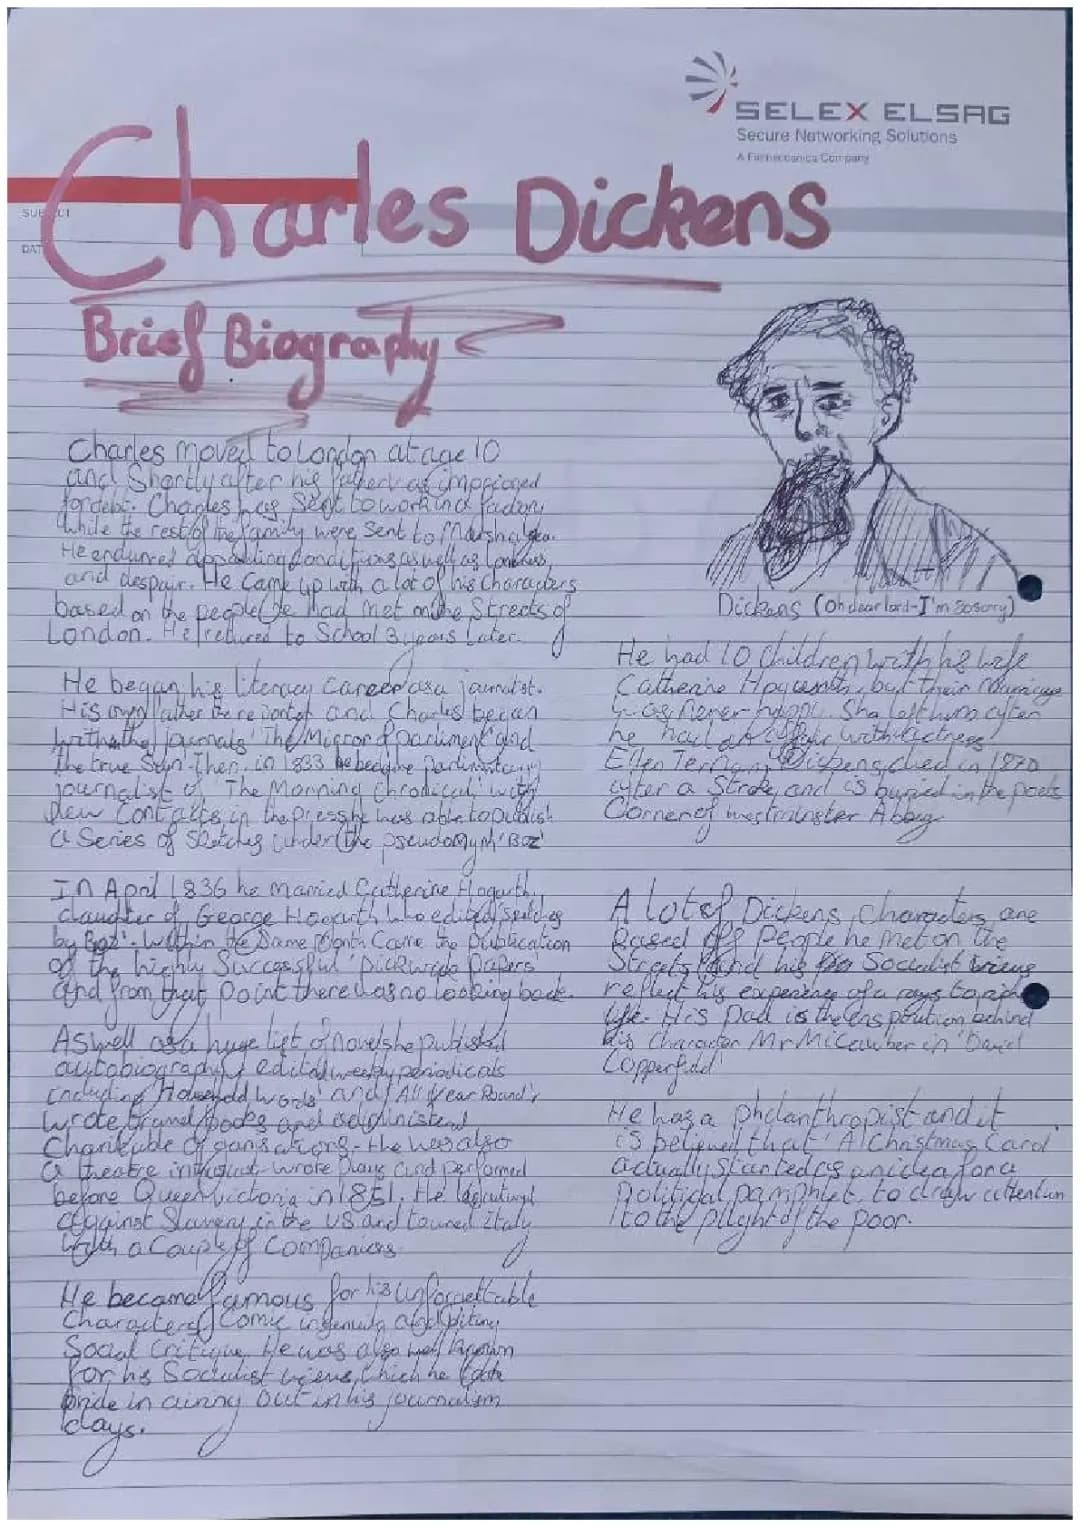 SELEX ELSAG
Secure Networking Solutions
A Finmeccanica Company
SUBJECT
DAT
Charles Dickens
Brief Biography
Charles moved to London at age 10
and Shortly after his father was impriosed
for debt. Charles was Sent to work in a factory
while the rest of the family were sent to Marshalsea.
He endured appauling conditions as well as loneliness
and despair. He came up with a lot of his characters
based on the people he had met on the Streets of
London. He returned to School 3 years later.
He began his literacy career as a journalist.
His own father a reporter and Charles began
with the journals 'The Mirror of Parliment' and
the true Sun. Then, in 1833 he became parlimentary
journalist of 'The Morning Chronical' with
new contacts in the press he was able to publish
a Series of Sketches under the pseudomym 'Boz'
In April 1836 he married Catherine Hogarth,
daughter of George Hogarth who edited 'Sketches
by Boz'. Within the Same Month Came the publication
of the highly Successful 'pickwick papers'
and from that point there was no looking back.
Aswell as a huge list of novels he published
autobiography, edited weekly periodicals
including 'Household Words' and 'All Year Round',
wrote travel books and administerd
Charitable Organsations. He was also
a theatre wrote plays and performed
before Queen Victoria in 1851. He
against Slavery in the US and toured Italy
with a Couple of Companions
He became famous for his unforgettable
Characters, Comic ingenuity and biting
Social Critique. He was also well known
for his Socialist views, which he took
pride in airing out in his journalism
days.
Dickens (Oh dear lord - I'm so sorry)
He had 10 children with his wife
Catherine but their marriage
was never happy. She left him after
he had an affair with actress
Ellen Ternan, Dickens died in 1870
after a Stroke and is buried in the poets
Corner of westminster Abbey
A lot of Dickens characters are
Based off people he met on the
Streets and his Socialist views
reflect his experience of a rags to rich
life. His Dad is the inspoution behind
his character Mr Micawber in 'David
Copperfield'
He was a philanthropist and it
is believed that 'A Christmas Carol'
actually started as an idea for a
Political pamphlet, to draw attention
to the plight of the poor.